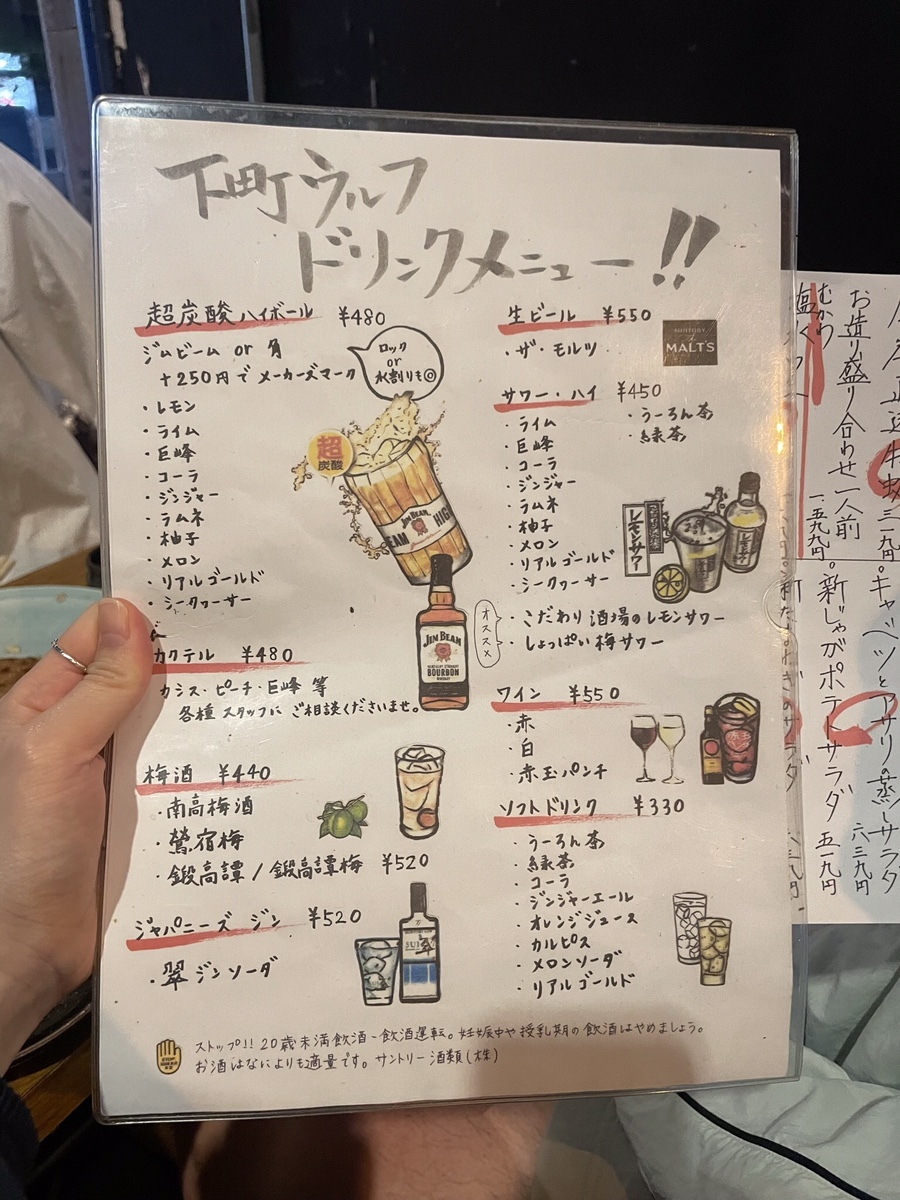 下町ウルフ
ドリンクメニュー!!
超炭酸ハイボール ¥480
ジムビーム or 角
+250円でメーカーズマーク
ロック
or
水割りも◎
・レモン
・ライム
・巨峰
・コーラ
・ジンジャー
・ラムネ
・柚子
・メロン
・リアルゴールド
・シークヮーサー
超
炭酸
JIM BEAM
HIGH
EAM
JIM BEAM
KENTUCKY STRAIGHT
BOURBON
WHISKEY
カクテル ¥480
カシス・ピーチ・巨峰 等
各種スタッフにご相談くださいませ。
梅酒 ¥440
・南高梅酒
・鶯宿梅
・鍛高譚 / 鍛高譚梅 ¥520
ジャパニーズジン ¥520
・翠ジンソーダ
SUI
翠
生ビール ¥550
・ザ・モルツ
SUNTORY
MALT'S
サワー・ハイ ¥450
・ライム
・巨峰
・コーラ
・ジンジャー
・ラムネ
・柚子
・メロン
・リアルゴールド
・シークヮーサー
・うーろん茶
・緑茶
レモンサワー
オススメ
・こだわり酒場のレモンサワー
・しょっぱい梅サワー
ワイン ¥550
・赤
・白
・赤玉パンチ
赤玉
パンチ
ソフトドリンク ¥330
・うーろん茶
・緑茶
・コーラ
・ジンジャーエール
・オレンジジュース
・カルピス
・メロンソーダ
・リアルゴールド
ストップ!! 20歳未満飲酒・飲酒運転。妊娠中や授乳期の飲酒はやめましょう。
お酒はなによりも適量です。サントリー酒類(株)
お造り盛り合わせ一人前
一五九九円
・キャベツとアサリの蒸しサラダ
六三九円
・新じゃがポテトサラダ
五一九円